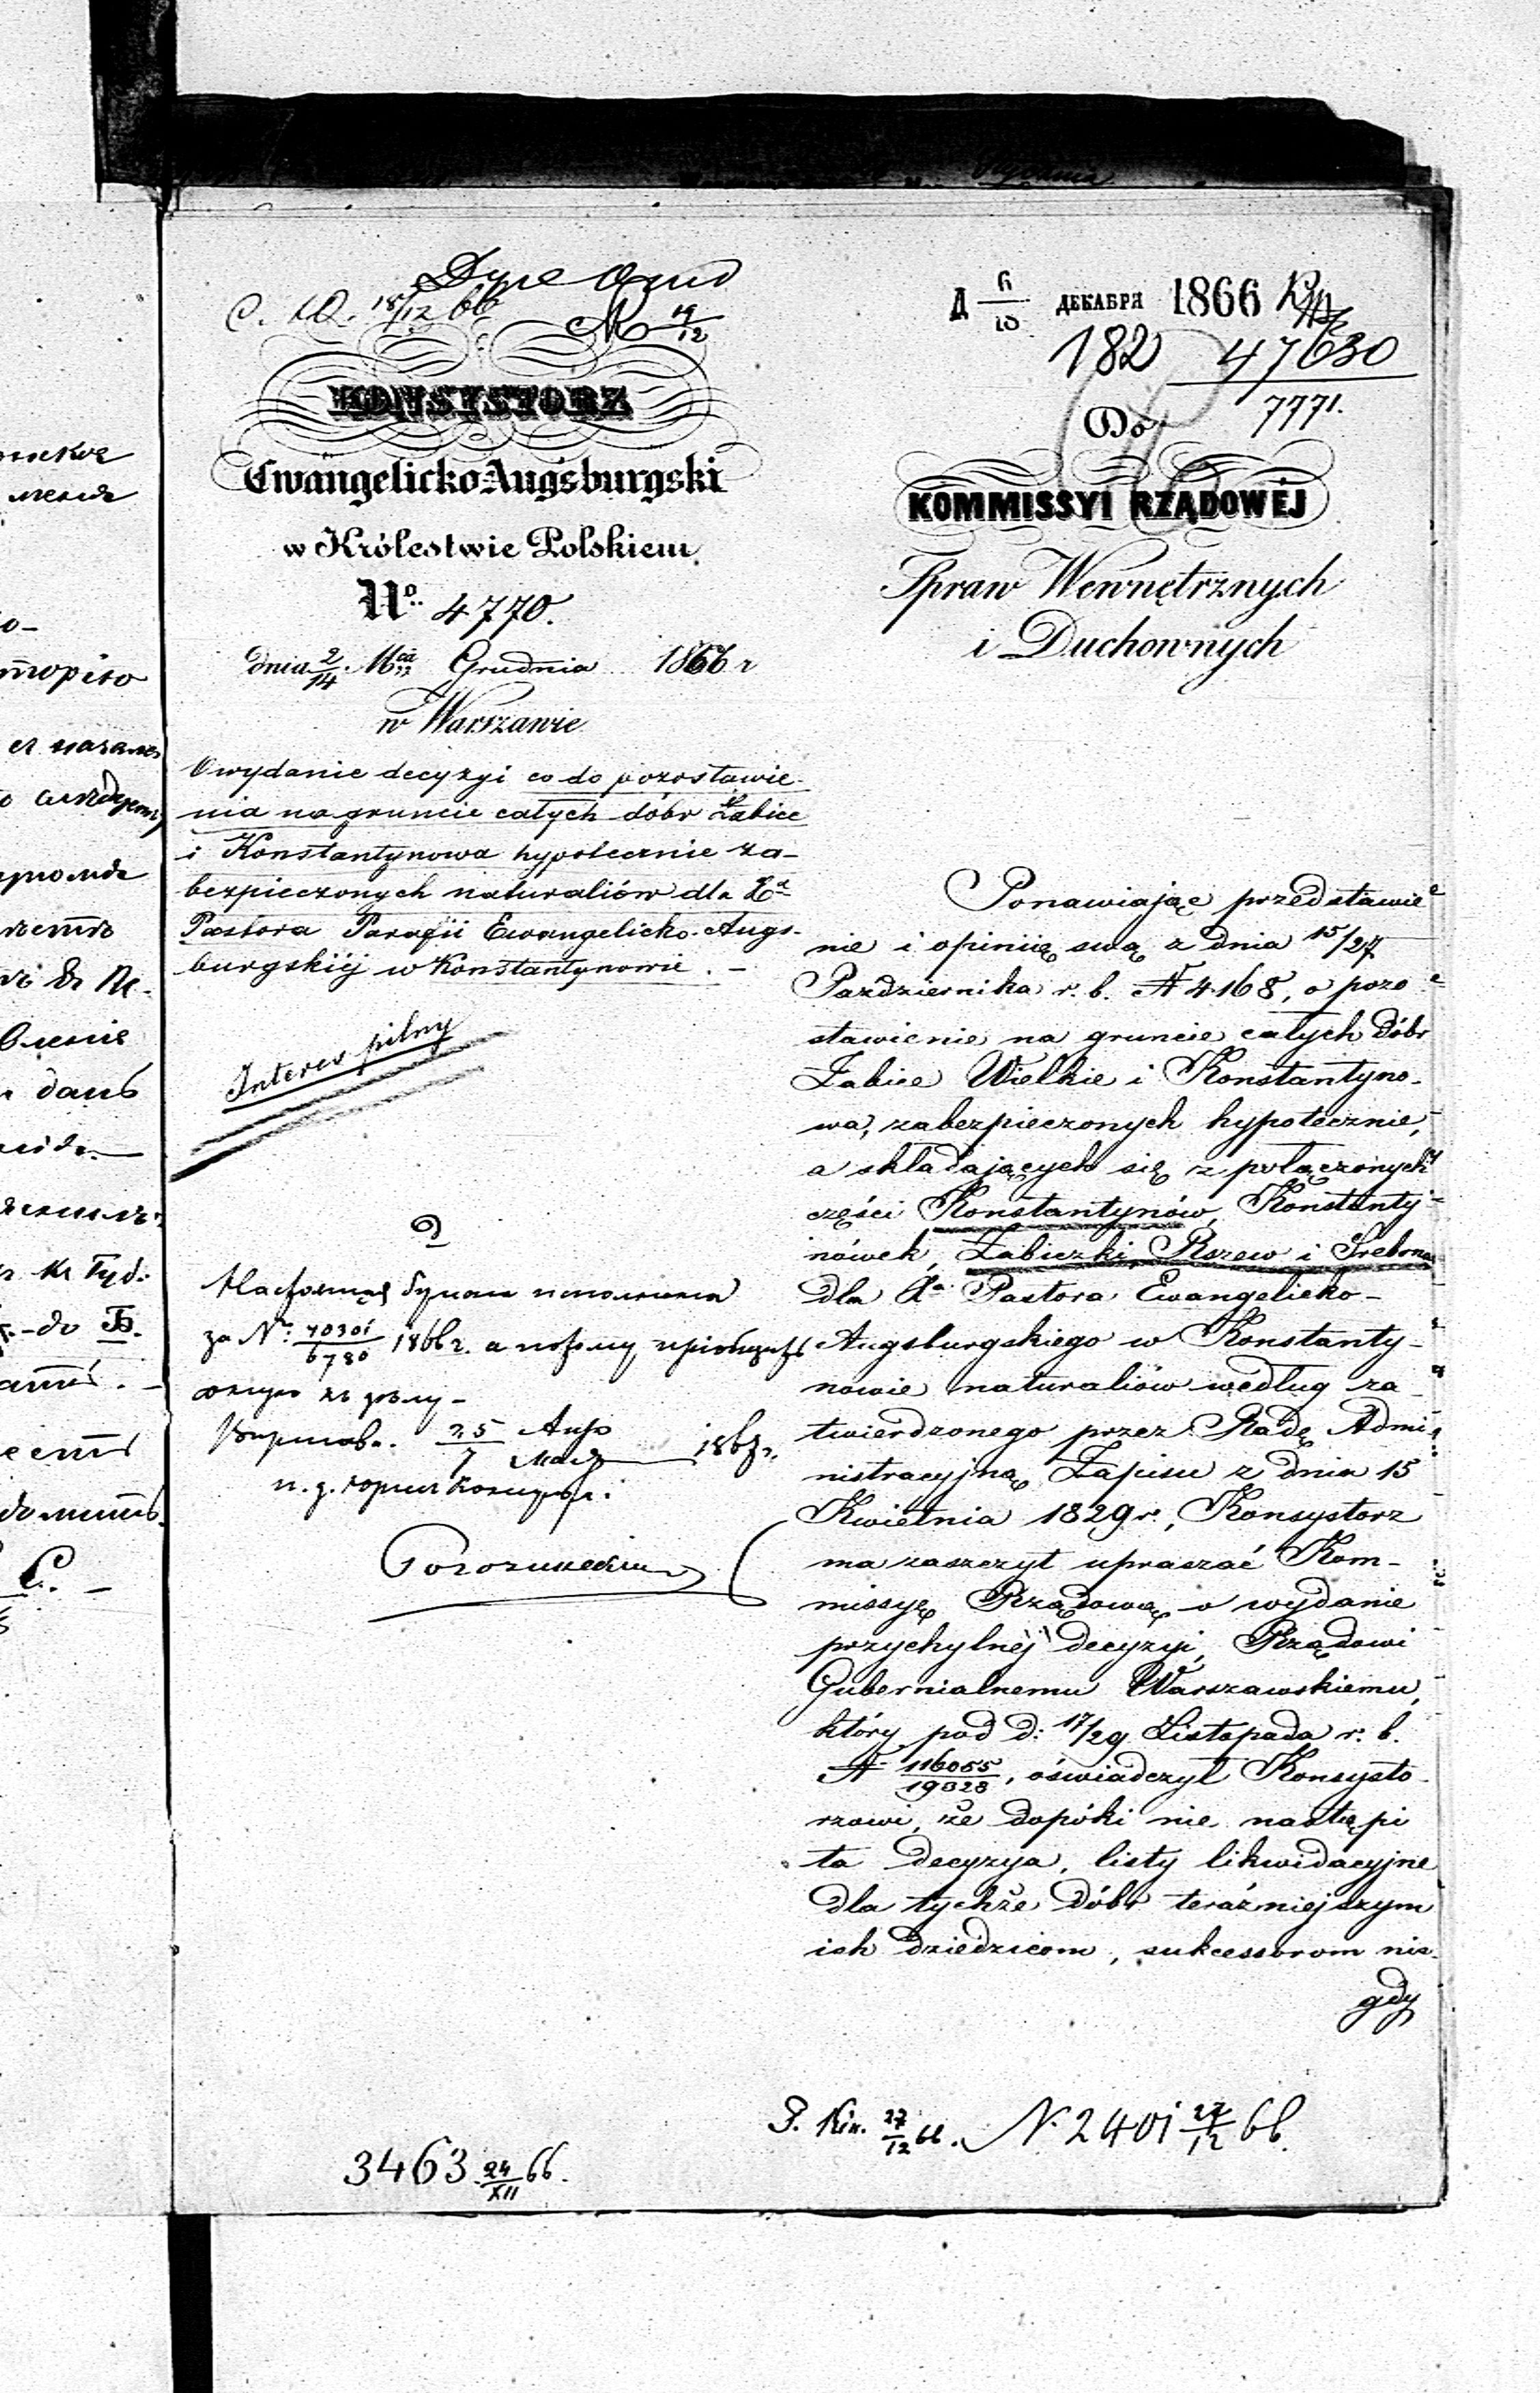 C. 10. 18/12 66
M 19/12
KONSYSTORZ
Ewangelicko-Augsburgski
w Królestwie Polskiem
No. 4770.
dnia 2/14 Mca Grudnia 1866 r
w Warszawie
O wydanie decyzyi co do pozostawie-
nia na gruncie całych dóbr Łabice
i Konstantynowa hypotecznie za-
bezpieczonych naturaliów dla Xa
Pastora Parafii Ewangelicko-Augs-
burgskiéj w Konstantynowie. -
Interes pilny
Настоящая бумага исполнена
за N: 40301/6780 1866 г. а потому приобщить
къ дѣлу -
Варшава. 25/7 Апр/Мая 1867 г.
Д 6/18 ДЕКАБРЯ 1866
182 47630
7771.
Do
KOMMISSYI RZĄDOWÉJ
Spraw Wewnętrznych
i Duchownych
Ponawiając przedstawie-
nie i opiniię swą z dnia 15/27
Pazdziernika r. b. N 4168, o pozo-
stawienie na gruncie całych dóbr
Łabice Wielkie i Konstantyno-
wa, zabezpieczonych hypotecznie,
a składających się z połączonych
części Konstantynów, Konstanty-
nówek, Łabiczki, Rszew i Srebrna
dla Xa Pastora Ewangelicko-
Augsburgskiego w Konstanty-
nowie naturaliów według za-
twierdzonego przez Radę Admi-
nistracyjną Zapisu z dnia 15
Kwietnia 1829 r., Konsystorz
ma zaszczyt upraszać Kom-
missyę Rządową o wydanie
przychylnéj decyzyi, Rządowi
Gubernialnemu Warszawskiemu,
który pod d: 17/29 Listopada r. b.
N 116055/19028, oświadczył Konsysto-
rzowi, że dopóki nie nastąpi
ta decyzya, listy likwidacyjne
dla tychże dóbr teráźniejszym
ich dziedzicom, sukcessorom nie-
gdy
3463 24/XII 66.
N. 2401 27/12 66.